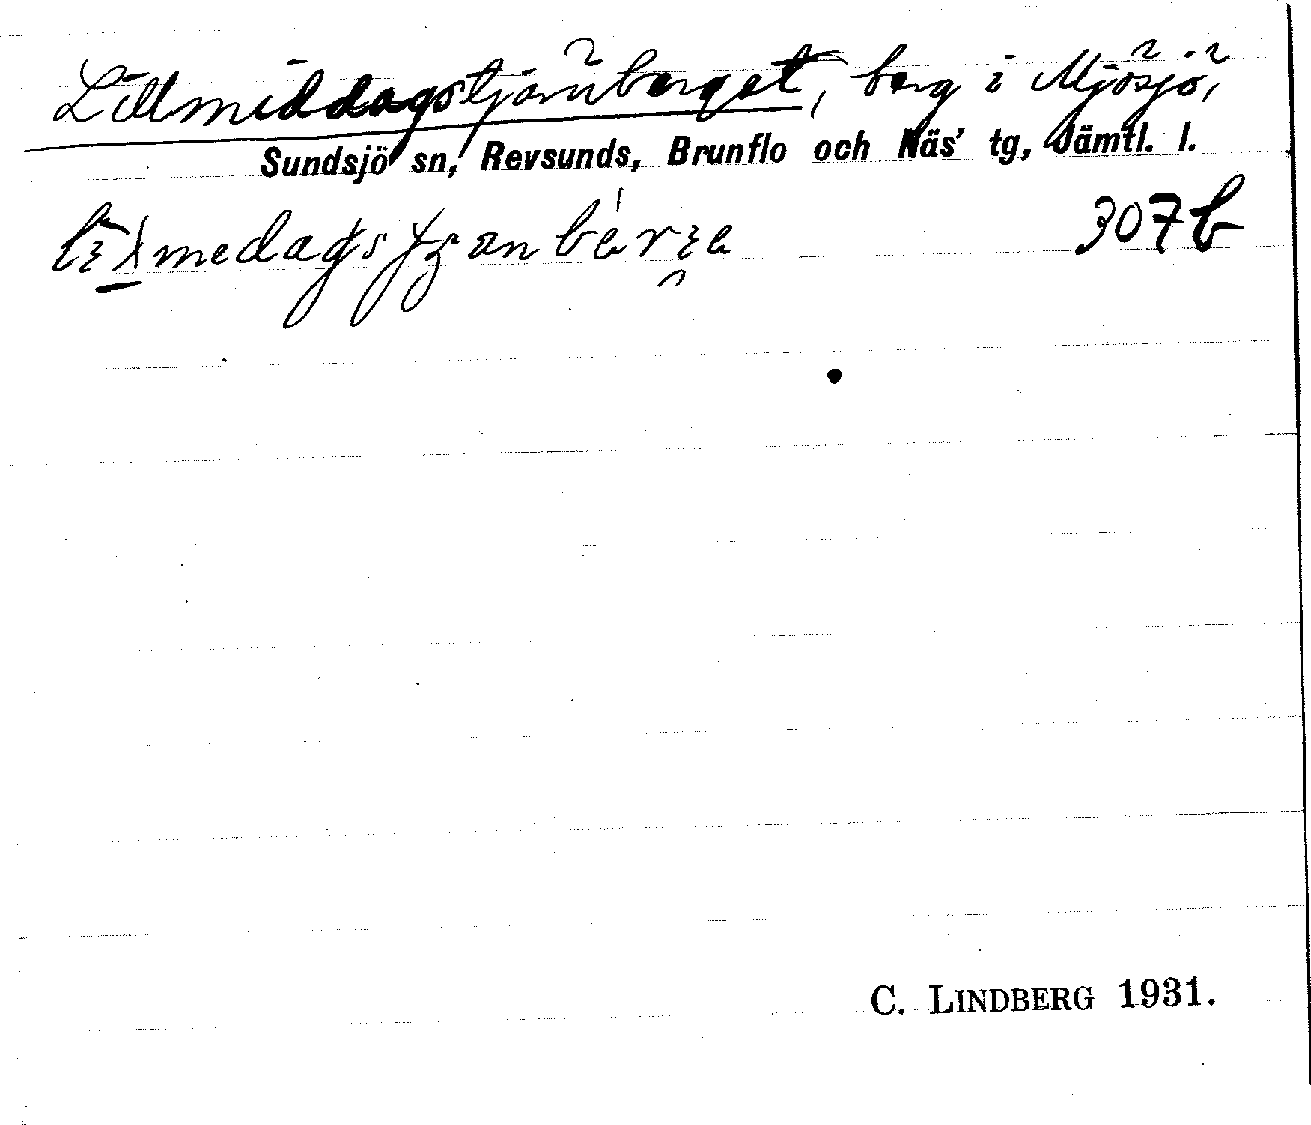 Lillmiddagstjärnberget, berg i Mjösjö,
Sundsjö sn, Revsunds, Brunflo och Näs' tg, Jämtl. l.
307b
C. LINDBERG 1931.